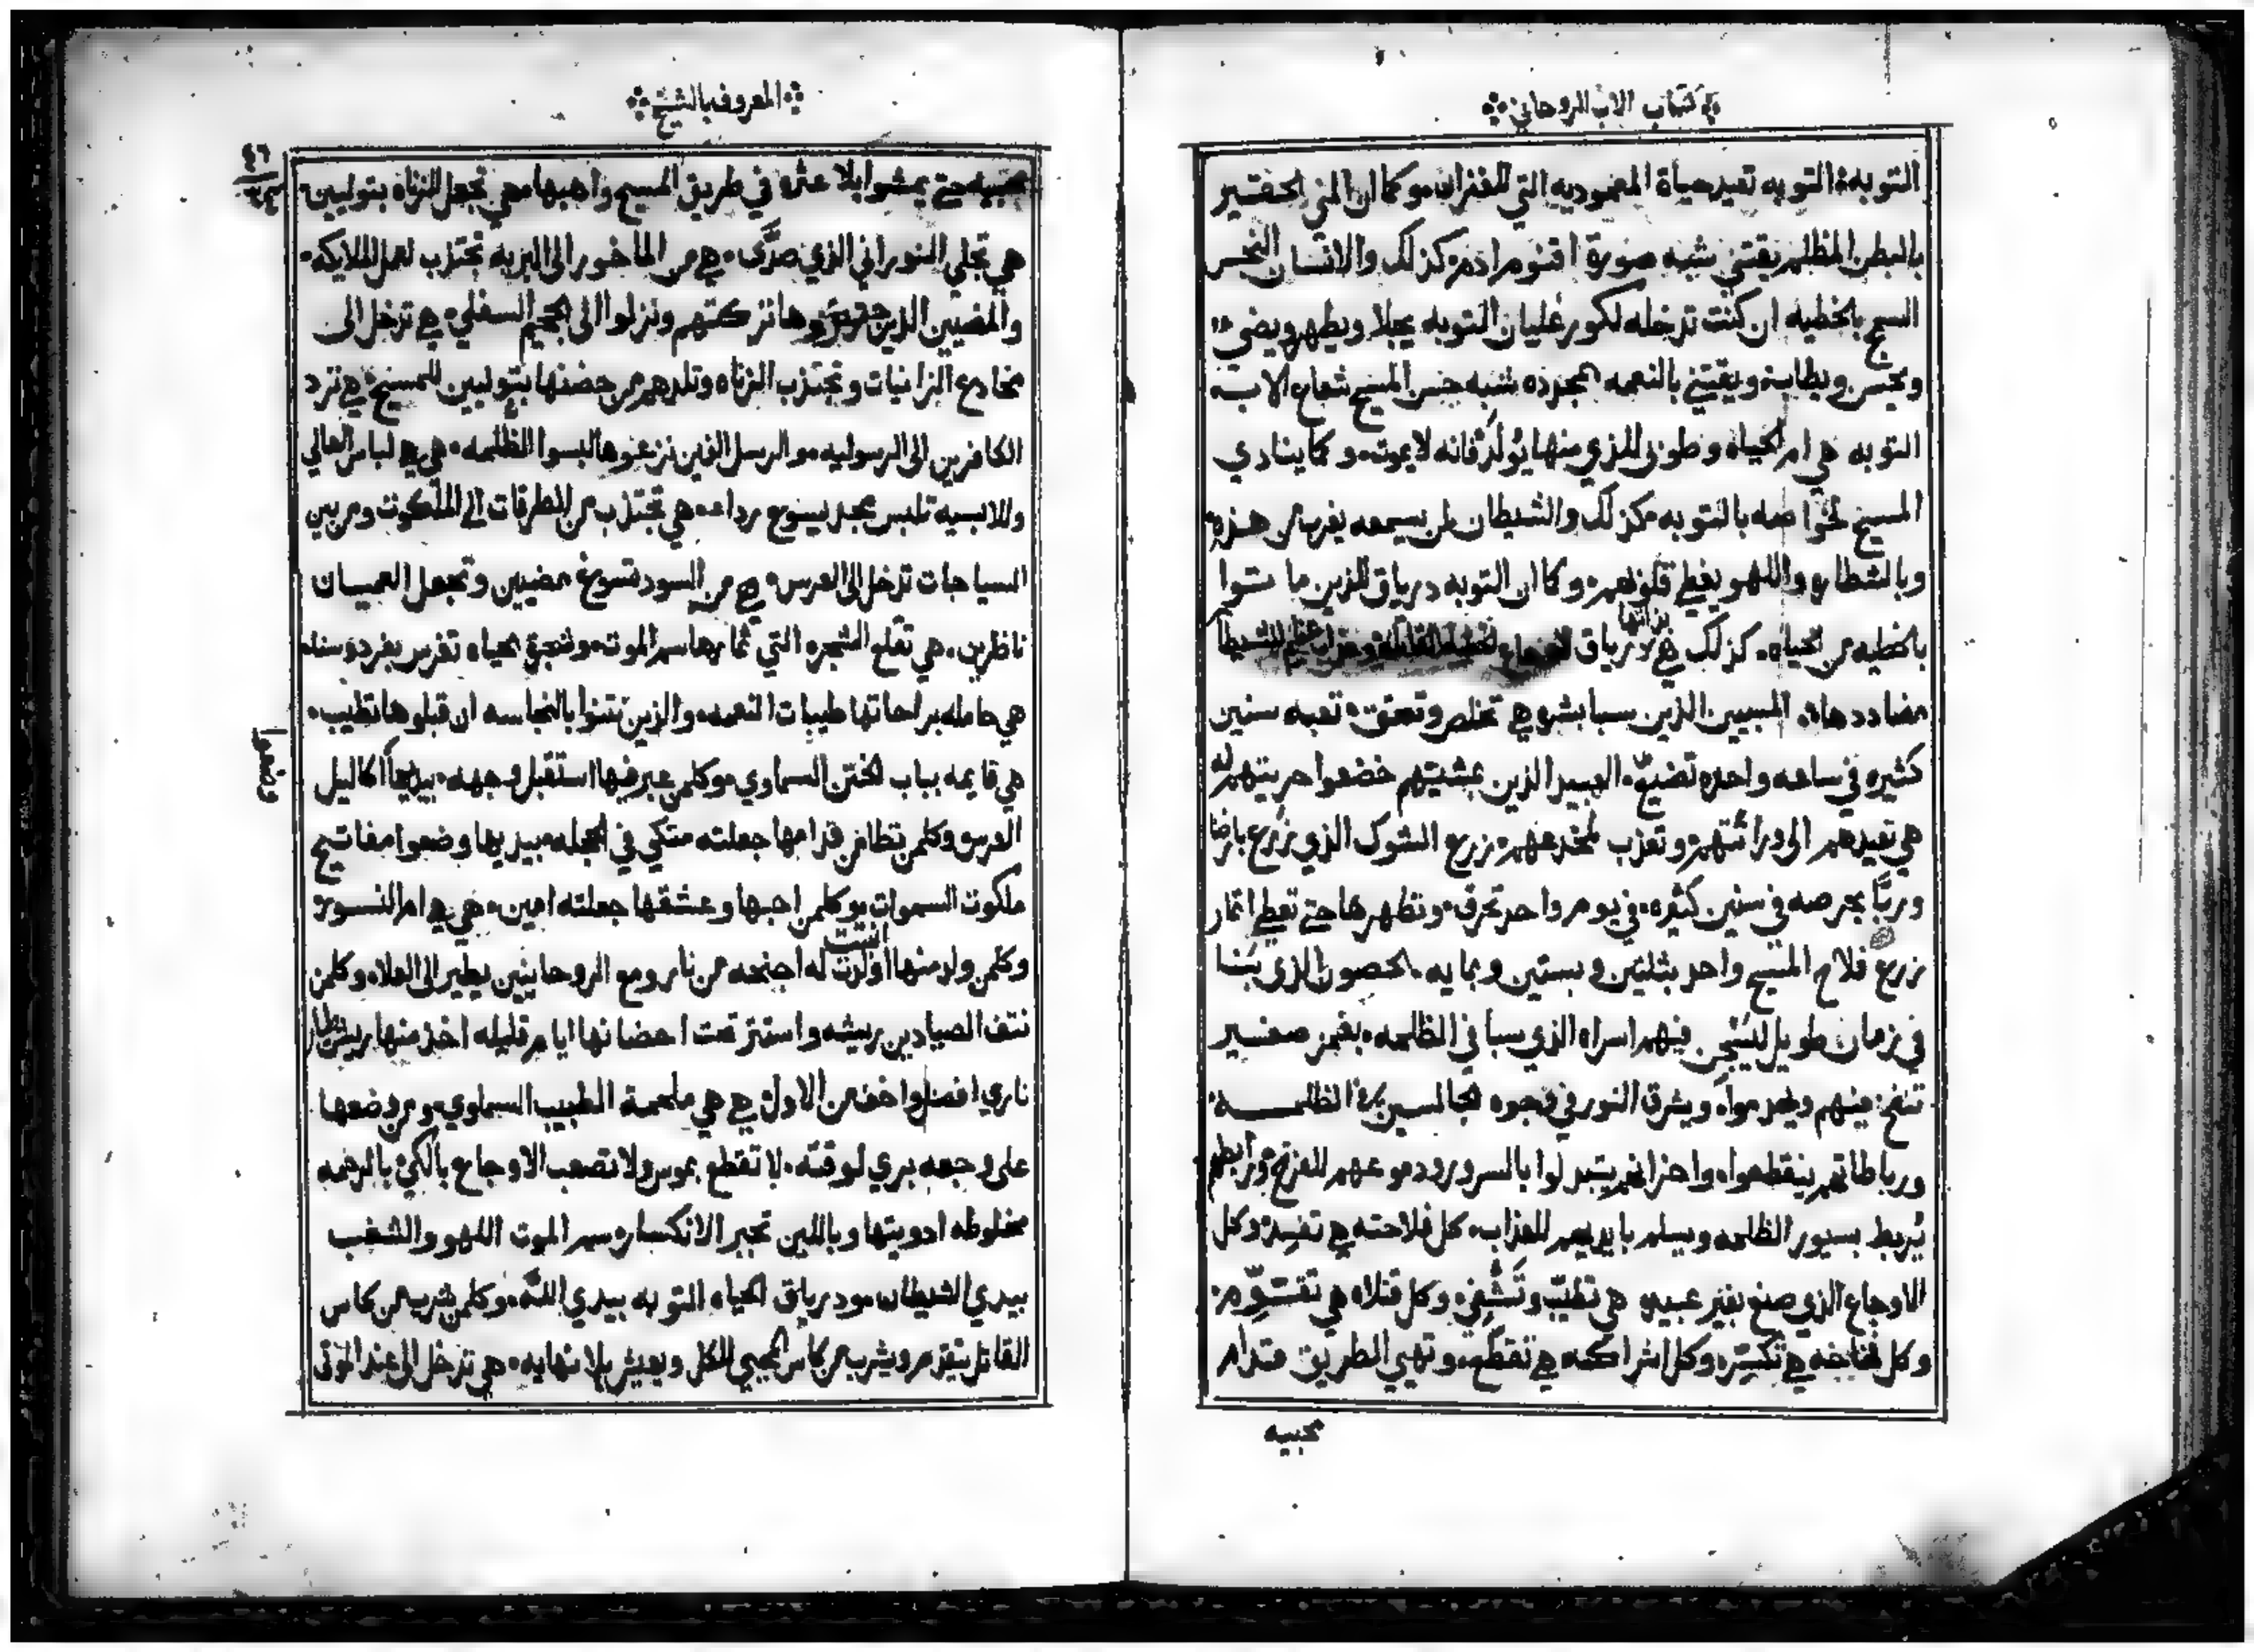 كتاب الاب الروحاني
التوبه التوبه تعيد حياة المعموديه التي للغفران وكما ان المني الحقير
بالبطن المظلم يقتني شبه صورة اقنوم ادم كذلك والانسان النجس
السمج بالخطيه ان كنت تدخله لكور غليان التوبه يجلا ويطهر ويضي
ويحسن ويقتني بالنعمه شبه حسن المسيح شعاع الاب
التوبه هي ام الحياه وطوبى للذي منها يولد فانه لا يموت وكما ينادي
المسيح لخواصه بالتوبه كذلك والشيطان لمن يسمعه من هذه
وبالشطاره واللهو يغطي قلوبهم وكما ان التوبه درياق للذين ماتوا
بالخطيه من الحياه كذلك هي درياق لاوجاع الخطيه القاتله عظيم للشيطا
مضاددها المسبيين الذين سبا بشره هي تخلص وتعتق تعبه سنين
كثيره في ساعه واحده تضيع العبيد الذين بمشيتهم خضعوا حريتهم له
هي تعيدهم الى وراثتهم وتعذب لمخدعهم زرع الشوك الذي زرع بارضنا
وربا بحرصه في سنين كثيره في يوم واحد تحرق وتطهرها حتى تعطي اثمار
زرع فلاح المسيح واحد بثلثين وبستين وبمايه الحصون الذي بنا
في زمان طويل ليسجن فيهم اسراه الذي سبا في الظلمه بفم صغير
تنفخ فيهم وينهدموا ويشرق النور في وجوه الجالسين الظلمه
ورباطاتهم ينقطعوا واحزانهم يتبدلوا بالسرور ودموعهم للفرح ورابطهم
يربط بسيور الظلمه ويسلم بايديهم للعذاب كل فلاحته هي تفسد وكل
الاوجاع الذي صنع بغير عبيه هي تطيب وتشفي وكل قتلاه هي تقوم
وكل فخاخه هي تكسر وكل اشراكه هي تقطع وتهيي الطريق قدام
محبيه
المعروف بالشيخ
محبيه حتى يمشوا بلا عثره في طريق المسيح واهبها هي تجعل الزناه بتوليين
هي تجلي النوراني الذي صدى هي من الماخور الى البريه تجتذب لعمل الملايكه
والمضيين الذين تركتهم ونزلوا الى الجحيم السفلي هي تدخل الى
مخادع الزانيات وتجتذب الزناه وتلدهم من حضنها بتوليين للمسيح هي ترد
الكافرين الى الرسوليه والرسل الذين نزعوها لبسوا الظلمه هي هي لباس العالي
وللابسيه تلبس مجد يسوع رداء هي تجتذب من الطرقات الى الملكوت ومن بين
السياجات تدخل الى العرس هي من السود تصوغ مضيين وتجعل العميان
ناظرين هي تقلع الشجره التي ثمارها سم الموت وشجرة الحياه تغرس بفردوسنا
هي حامله براحاتها طيبات النعمه والذين نتنوا بالنجاسه ان قبلوها تطيب
ونعموا
هي قايمه بباب الختن السماوي وكلمن عبر فيها استقبل وجهه بيديها اكاليل
العرس وكلمن تطامن قدامها جعلته متكي في الحجله بيديها وضعوا مفاتيح
ملكوت السموات وكلمن احبها وعشقها جعلته امين هي هي ام النسور
وكلمن ولد منها انبتت له اجنحه من نار ومع الروحانيين يطير الى العلاء وكلمن
نتف الصيادين ريشه واستتر تحت احضانها ايام قليله اخذ منها ريش
ناري افضل واخف من الاول هي هي ملحمة الطبيب السماوي ومن وضعها
على وجعه بري لوقته لا تقطع بموس ولا تصعب الاوجاع بالكي بالرحمه
مخلوطه ادويتها وباللين تجبر الانكسار وسم الموت اللهو والشغب
بيدي الشيطان ودرياق الحياه التوبه بيدي الله وكلمن شرب من كاس
القاتل يتقدم ويشرب من كاس المحيي الكل ويعيش بلا نهايه هي تدخل الى عند الموتى